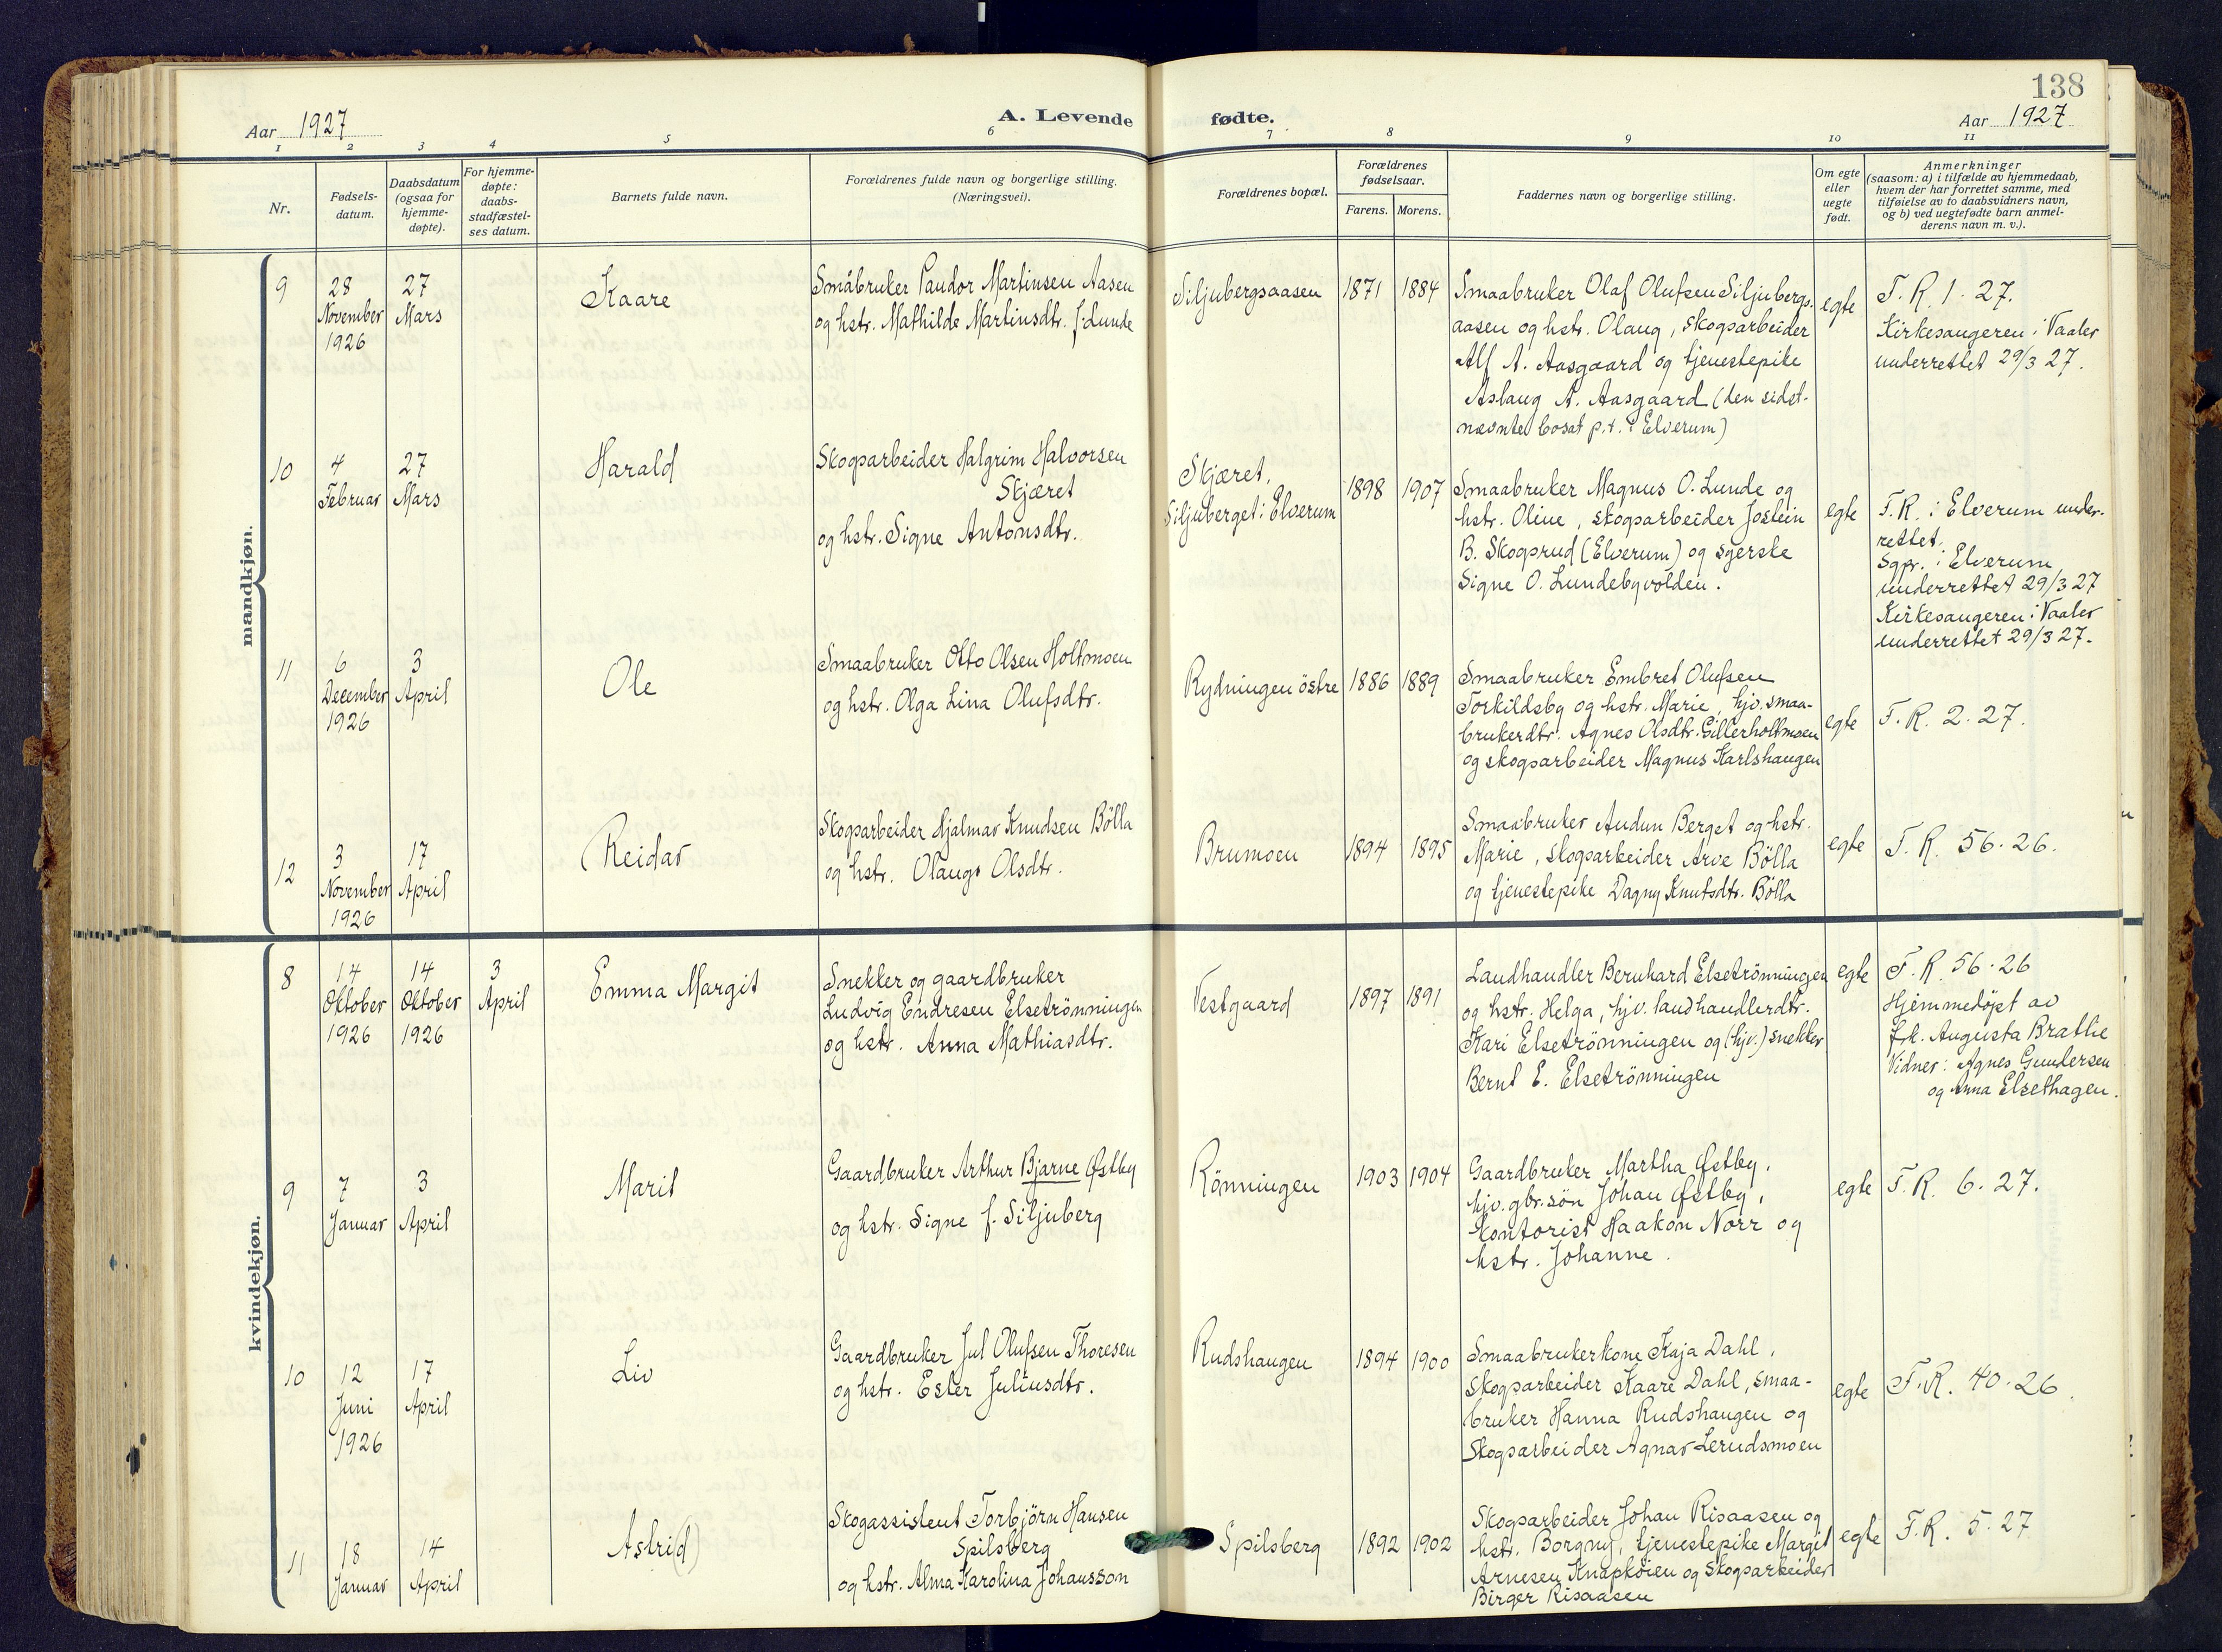 138
Aar 1927
A. Levende fødte.
Aar 1927
1 2 3 4 5 6 7 8 9 10 11
Nr.
Fødsels-
datum.
Daabsdatum
(ogsaa for
hjemme-
døpte).
For hjemme-
døpte:
daabs-
stadfæstel-
ses datum.
Barnets fulde navn.
Forældrenes fulde navn og borgerlige stilling.
(Næringsvei).
Forældrenes bopæl.
Forældrenes
fødselsaar.
Farens. Morens.
Faddernes navn og borgerlige stilling.
Om egte
eller
uegte
født.
Anmerkninger
(saasom: a) i tilfælde av hjemmedaab,
hvem der har forrettet samme, med
tilføielse av to daabsvidners navn,
og b) ved uegtefødte barn anmel-
derens navn m. v.).
mandkjøn.
9
28
November
1926
27
Mars
Kaare
Småbruker Pandor Martinsen Aasen
og hstr. Mathilde Martinsdtr. f. Lunde
Siljubergsaasen
1871
1884
Smaabruker Olaf Olufsen Siljubergs-
aasen og hstr. Olaug, skogsarbeider
Alf A. Aasgaard og tjenestepike
Aslaug A. Aasgaard (den sidst-
nævnte bosat p.t. i Elverum)
egte
F. R. 1. 27.
Kirkesangeren i Vaaler
underrettet 29/3 27.
10
4
Februar
27
Mars
Harald
Skogsarbeider Halgrim Halvorsen
Skjæret
og hstr. Signe Antonsdtr.
Skjæret,
Siljuberget i Elverum
1898
1907
Smaabruker Magnus O. Lunde og
hstr. Oline, skogsarbeider Jostein
B. Skogsrud (Elverum) og syerske
Signe O. Lundebyvolden.
egte
F. R. i Elverum under-
rettet.
Sgpr. i Elverum
underrettet 29/3 27
Kirkesangeren i Vaaler
underrettet 29/3 27.
11
6
December
1926
3
April
Ole
Smaabruker Otto Olsen Holtmoen
og hstr. Olga Lina Olufsdtr.
Rydningen östre
1886
1889
Smaabruker Embret Olufsen
Torkildsby og hstr. Marie, hjv. smaa-
brukerdtr. Agnes Olsdtr. Gillerholtmoen
og skogsarbeider Magnus Karlshaugen
egte
F. R. 2. 27.
12
3
November
1926
17
April
Reidar
Skogsarbeider Hjalmar Knudsen Bölla
og hstr. Olaug Olsdtr.
Brumoen
1894
1895
Smaabruker Audun Berget og hstr.
Marie, skogsarbeider Arve Bölla
og tjenestepike Dagny Knutsdtr. Bölla
egte
F. R. 56. 26.
kvindekjøn.
8
14
Oktober
1926
14
Oktober
1926
3
April
Emma Margit
Snekker og gaardbruker
Ludvig Endresen Elsetrönningen
og hstr. Anna Mathiasdtr.
Vestgaard
1897
1891
Landhandler Bernhard Elsetrönningen
og hstr. Helga, hjv. landhandlerdtr.
Kari Elsetrönningen og (hjv.) snekker
Bernt E. Elsetrönningen
egte
F. R. 56. 26
Hjemmedöpt av
frk. Augusta Brathe
Vidner: Agnes Gundersen
og Anna Elsethagen.
9
7
Januar
3
April
Marit
Gaardbruker Arthur Bjarne Østby
og hstr. Signe f. Siljuberg
Rönningen
1903
1904
Gaardbruker Martha Østby,
hjv. gbr. sön Johan Østby,
Kontorist Haakon Norr og
hstr. Johanne.
egte
F. R. 6. 27.
10
12
Juni
1926
17
April
Liv
Gaardbruker Jul Olufsen Thoresen
og hstr. Ester Juliusdtr.
Rudshaugen
1894
1900
Smaabrukerkone Kaja Dahl,
Skogsarbeider Kaare Dahl, smaa-
bruker Hanna Rudshaugen og
Skogsarbeider Agnar Lerudsmoen
egte
F. R. 40. 26.
11
18
Januar
14
April
Astri(d)
Skogassistent Torbjörn Hansen
Spilsberg
og hstr. Alma Karolina Johansson
Spilsberg
1892
1902
Skogsarbeider Johan Risaasen og
hstr. Borgny, tjenestepike Margit
Arnesen Knapkoien og skogsarbeider
Birger Risaasen
egte
F. R. 5. 27